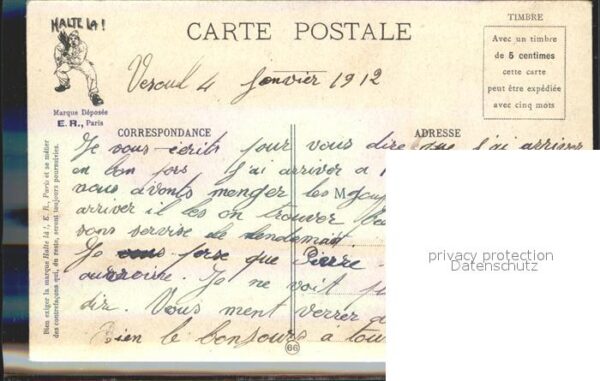 HALTE LÀ!
Marque Déposée
E. R., Paris
CARTE POSTALE
TIMBRE
Avec un timbre
de 5 centimes
cette carte
peut être expédiée
avec cinq mots
Vesoul 4 Janvier 1912
CORRESPONDANCE
ADRESSE
Je vous écrits pour vous dire que j'ai arriver
en bon J'ai arriver a
vous avonts menger les
M
arriver il les on trouver
sans servise le lendemain
Je vous que Pierre
Je ne voit
dire. Vous ment verrez
Bien le bonjours à tou
66
Bien exiger la marque Halte là!, E. R., Paris et se méfier
des contrefaçons qui, du reste, seront toujours poursuivies.
privacy protection
Datenschutz